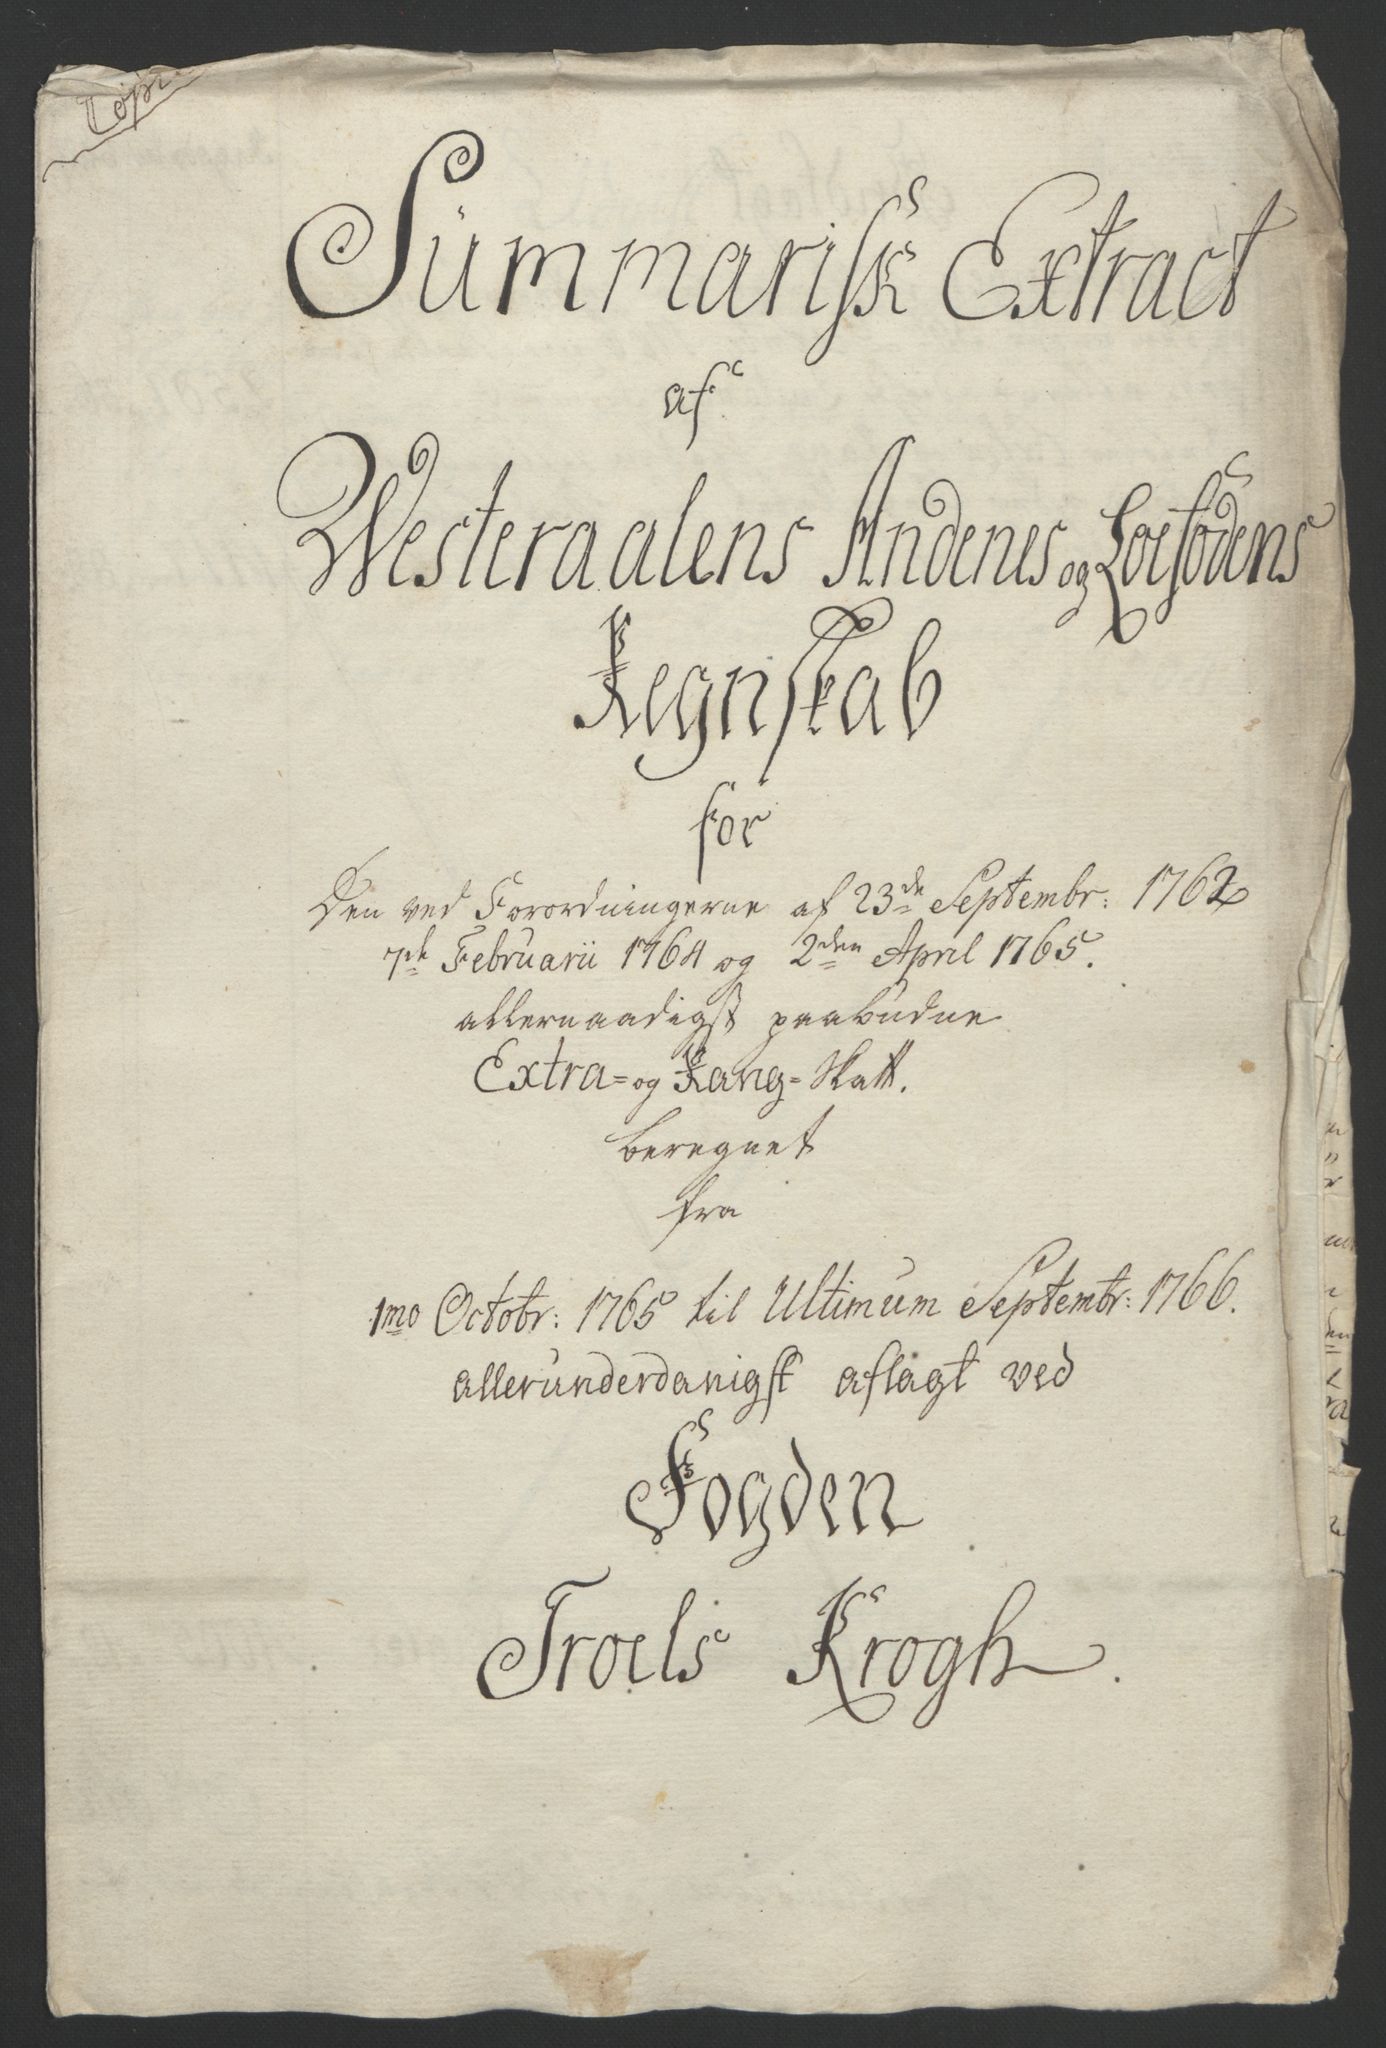 Copie
Summarisk Extract
af
Westeraalens Andenes og Loefodens
Regnskab
for
Den ved Forordningerne af 23de Septembr: 1762
7de Februarii 1764 og 2den April 1765.
allernaadigst paabudne
Extra= og Rang= Skatt.
beregnet
fra
1mo Octobr: 1765 til Ultimum Septembr: 1766.
allerunderdanigst aflagt ved
Fogden
Troels Krogh.